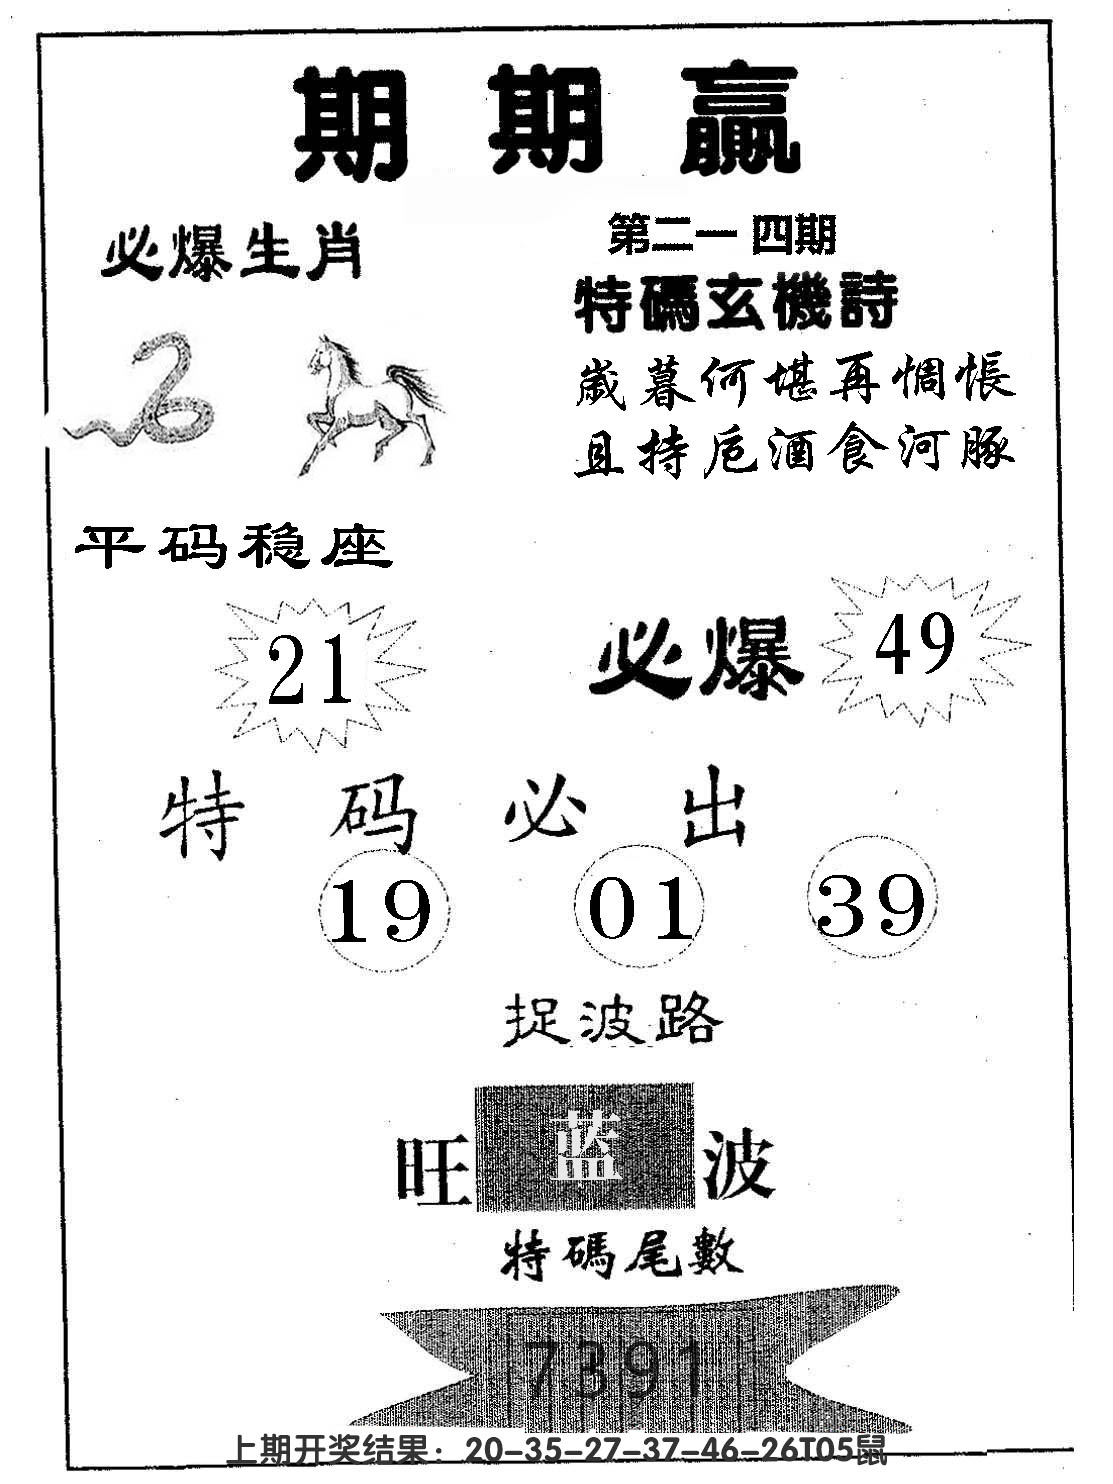 期期赢
必爆生肖
第二一四期
特碼玄機詩
歲暮何堪再惆悵
且持卮酒食河豚
平码稳座
21
必爆
49
特码必出
19 01 39
捉波路
旺 蓝 波
特碼尾數
7391
上期开奖结果：20-35-27-37-46-26T05鼠